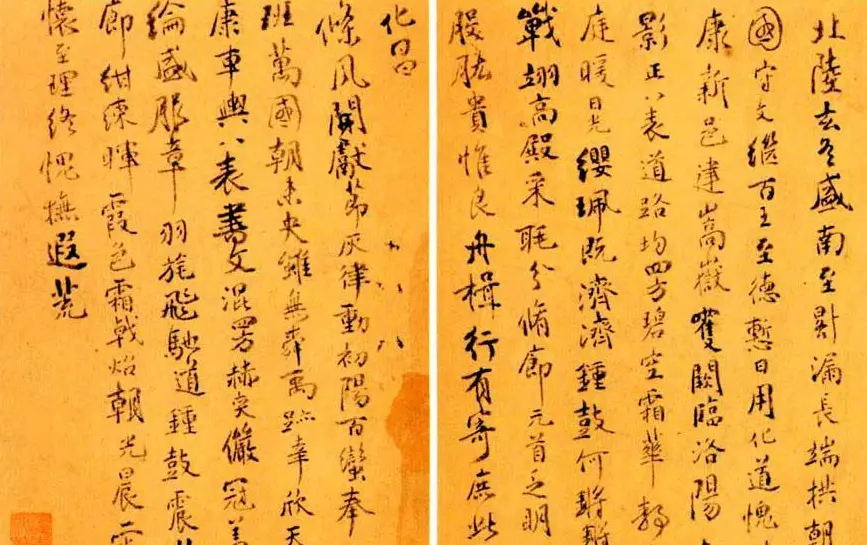 北陸玄冬盛南至晷漏長端拱朝
國守文繼百王至德慙日用化道愧
康新邑建嵩嶽雙闕臨洛陽
影正八表道路均四方碧空霜華靜
庭暖日光纓珮既濟濟鍾鼓何鏘鏘
戟翊高殿采眊分脩廊元首乏明
股肱貴惟良舟楫行有寄庶此
化昌
條風開獻節灰律動初陽百蠻奉
班萬國朝未央雖無舜禹跡幸欣天
康車輿八表書文混四方赫奕儼冠蓋
綸盛服章羽旄飛馳道鍾鼓震
廊組練暉霞色霜戟炤朝光晨
懷至理終愧撫遐荒